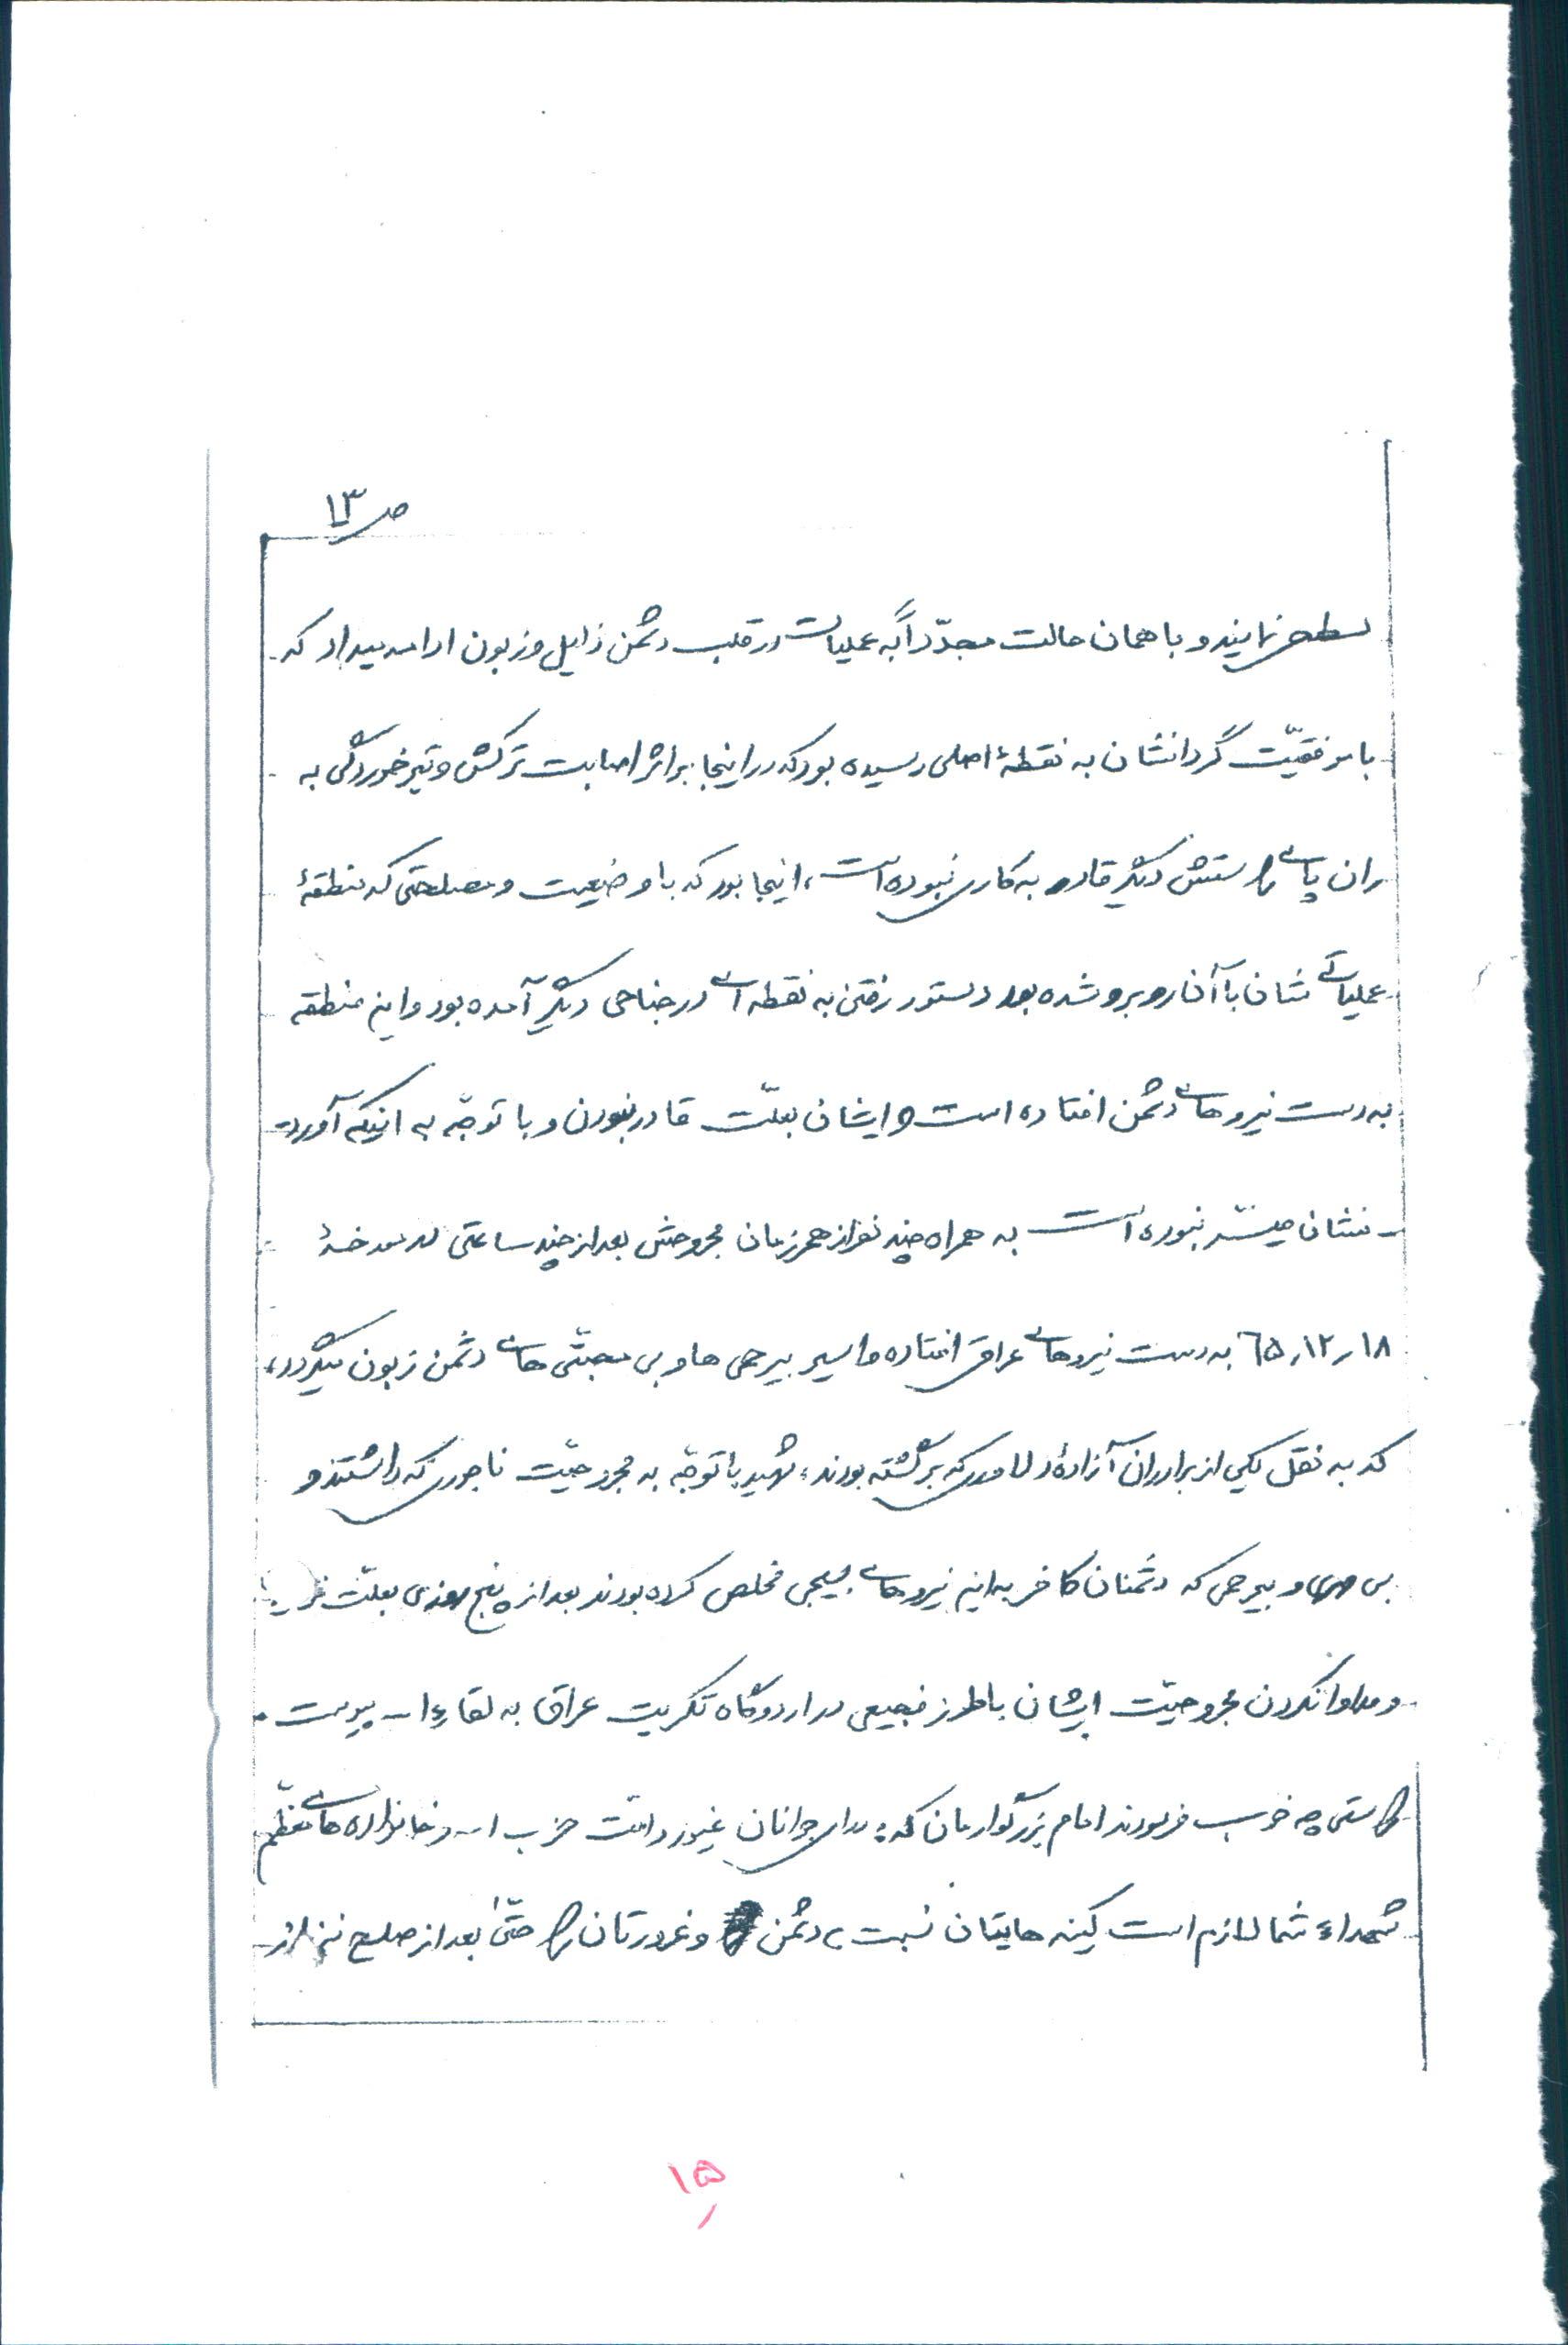 ص ۱۳
نمایند و با همان حالت مجدّداً به عملیات در قلب دشمن زایل و زبون ادامه میداد که
با موفقیّت گردانشان به نقطهٔ اصلی رسیده بود که در اینجا بر اثر اصابت ترکش و تیر خوردگی به
ران پای راستش دیگر قادر به کاری نبوده است، اینجا بود که با وضعیت و مصلحتی که منطقهٔ
عملیاتی شان با آن روبرو شده بود دستور رفتن به نقطه ای در جناحی دیگر آمده بود و این منطقه
به دست نیروهای دشمن افتاده است و ایشان بعلّت قادر نبودن و با توجّه به اینکه آورد
نشان میسّر نبوده است به همراه چند نفر از همرزمان مجروحش بعد از چند ساعتی
۶۵٫۱۲٫۱۸ به دست نیروهای عراق افتاده و اسیر بیرحمی ها و بی محبّتی های دشمن زبون میگردد،
که به نقل یکی از برادران آزادهٔ که برگشته بودند، شهید با توجّه به مجروحیّت ناجوری که داشتند و
بی و بیرحمی که دشمنان کافر به این نیروهای بسیجی مخلص کرده بودند بعد از پنج روزی بعلّت
و مداوا نکردن مجروحیّت ایشان با طرز فجیعی در اردوگاه تکریت عراق به لقاءا.. پیوست.
راستی چه خوب فرمودند امام بزرگوارمان که: برای جوانان غیور و امّت حزب ا.. و خانواده های معظّم
شهداء شما لازم است کینه هایتان نسبت به دشمن و غرورتان را حتّی بعد از صلح نیز از
۱۵